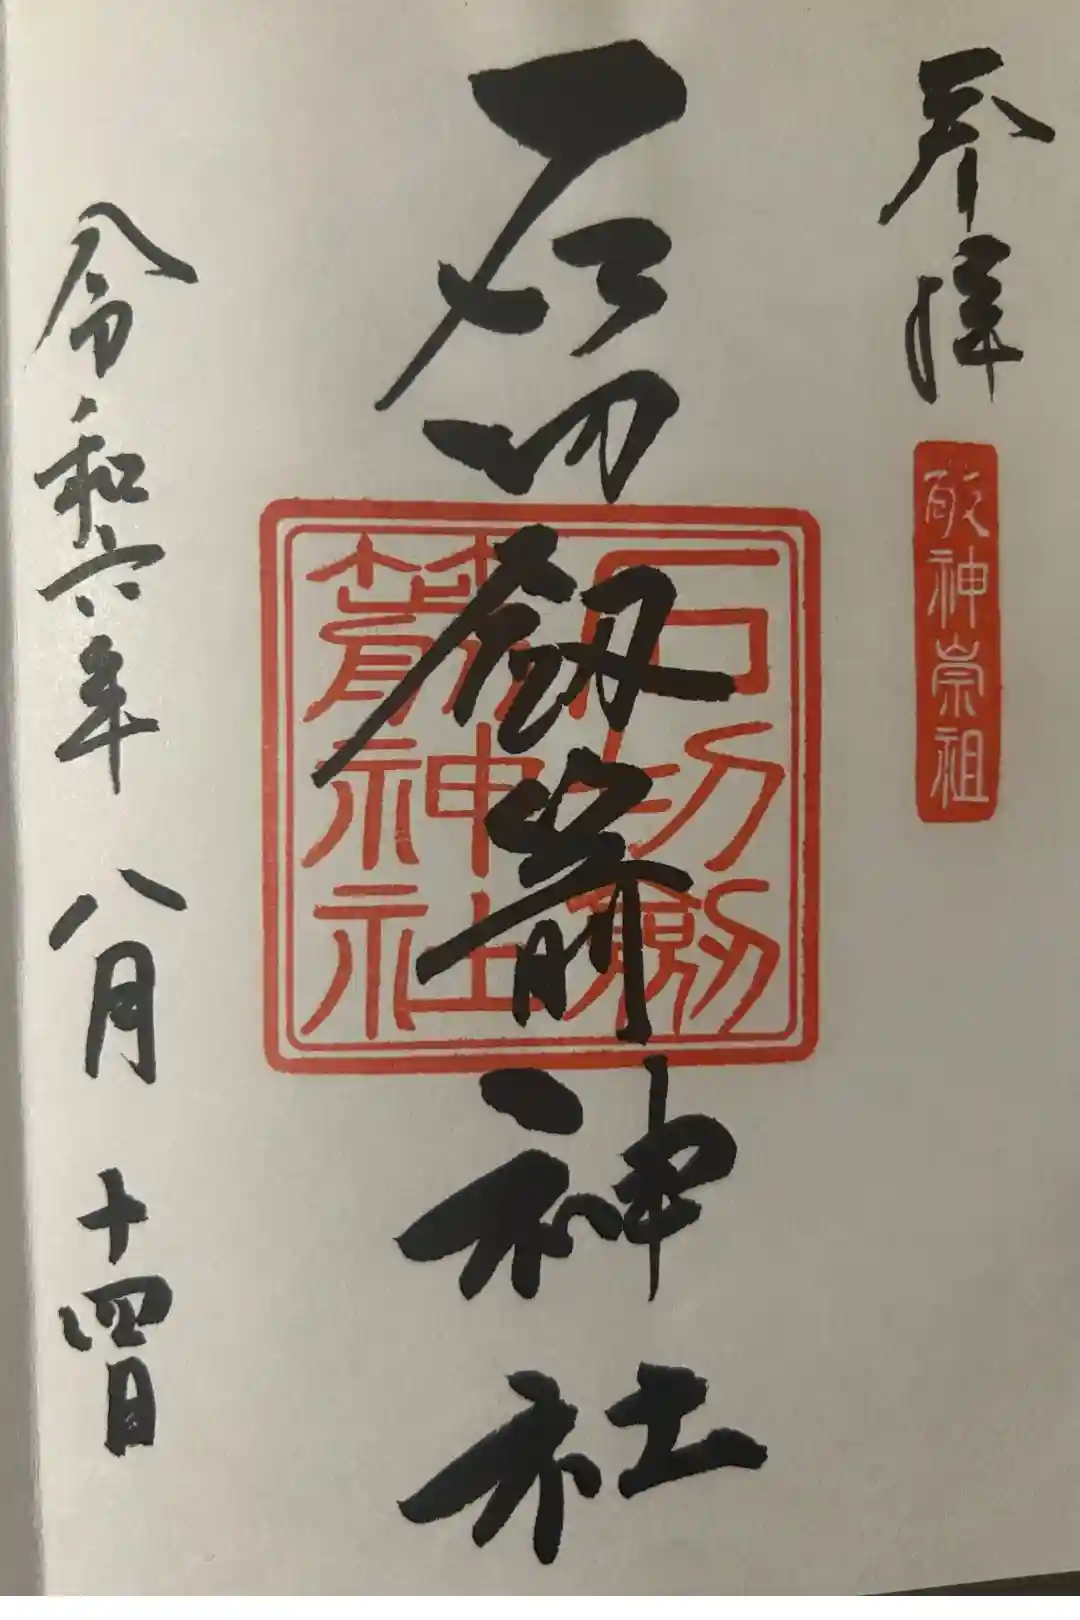 奉拝
敬神崇祖
石切劔箭神社
石切劔
箭神社
令和六年八月十四日